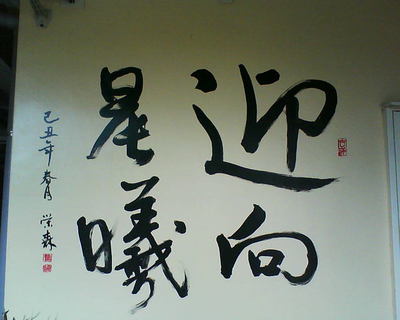 迎向
晨曦
己丑年春月 栄森